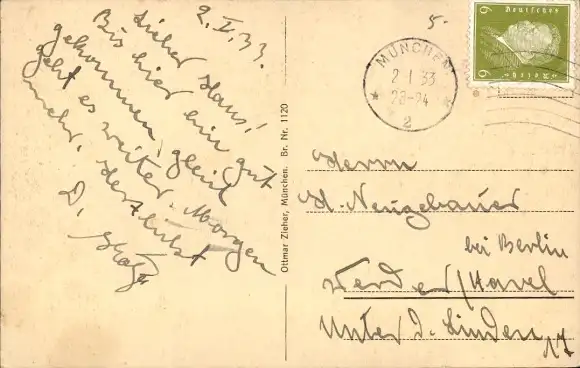 2.I.33.
Lieber Hans!
Bis hier bin gut
gekommen, gleich
geht es weiter. Morgen
mehr. Herzlichst
D.
Ottmar Zieher, München. Br. Nr. 1120
5.-
MÜNCHEN
2.1.33
2
6 Deutsches Reich 6
Herrn
H. Neugebauer
bei Berlin
Werder/Havel
Unter d. Linden 17